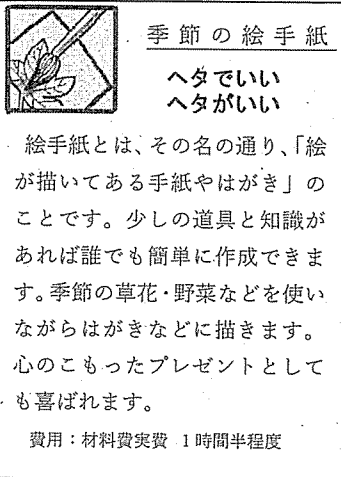 季節の絵手紙
ヘタでいい
ヘタがいい
絵手紙とは、その名の通り、「絵
が描いてある手紙やはがき」の
ことです。少しの道具と知識が
あれば誰でも簡単に作成できま
す。季節の草花・野菜などを使い
ながらはがきなどに描きます。
心のこもったプレゼントとして
も喜ばれます。
費用：材料費実費 1時間半程度